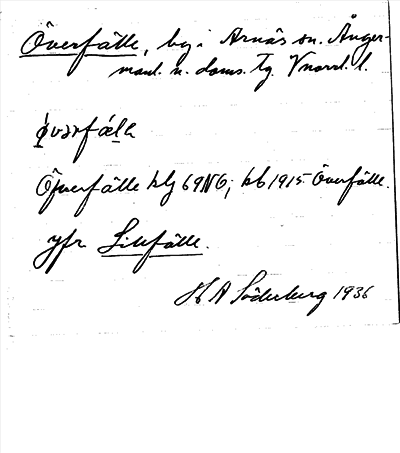 Överfälle, by i Arnäs sn. Ånger-
manl. n. doms. tg. Vnorrl. l.
Öfverfälle klg 69NO; kb 1915 Överfälle.
jfr Lillfälle.
H A Söderberg 1936